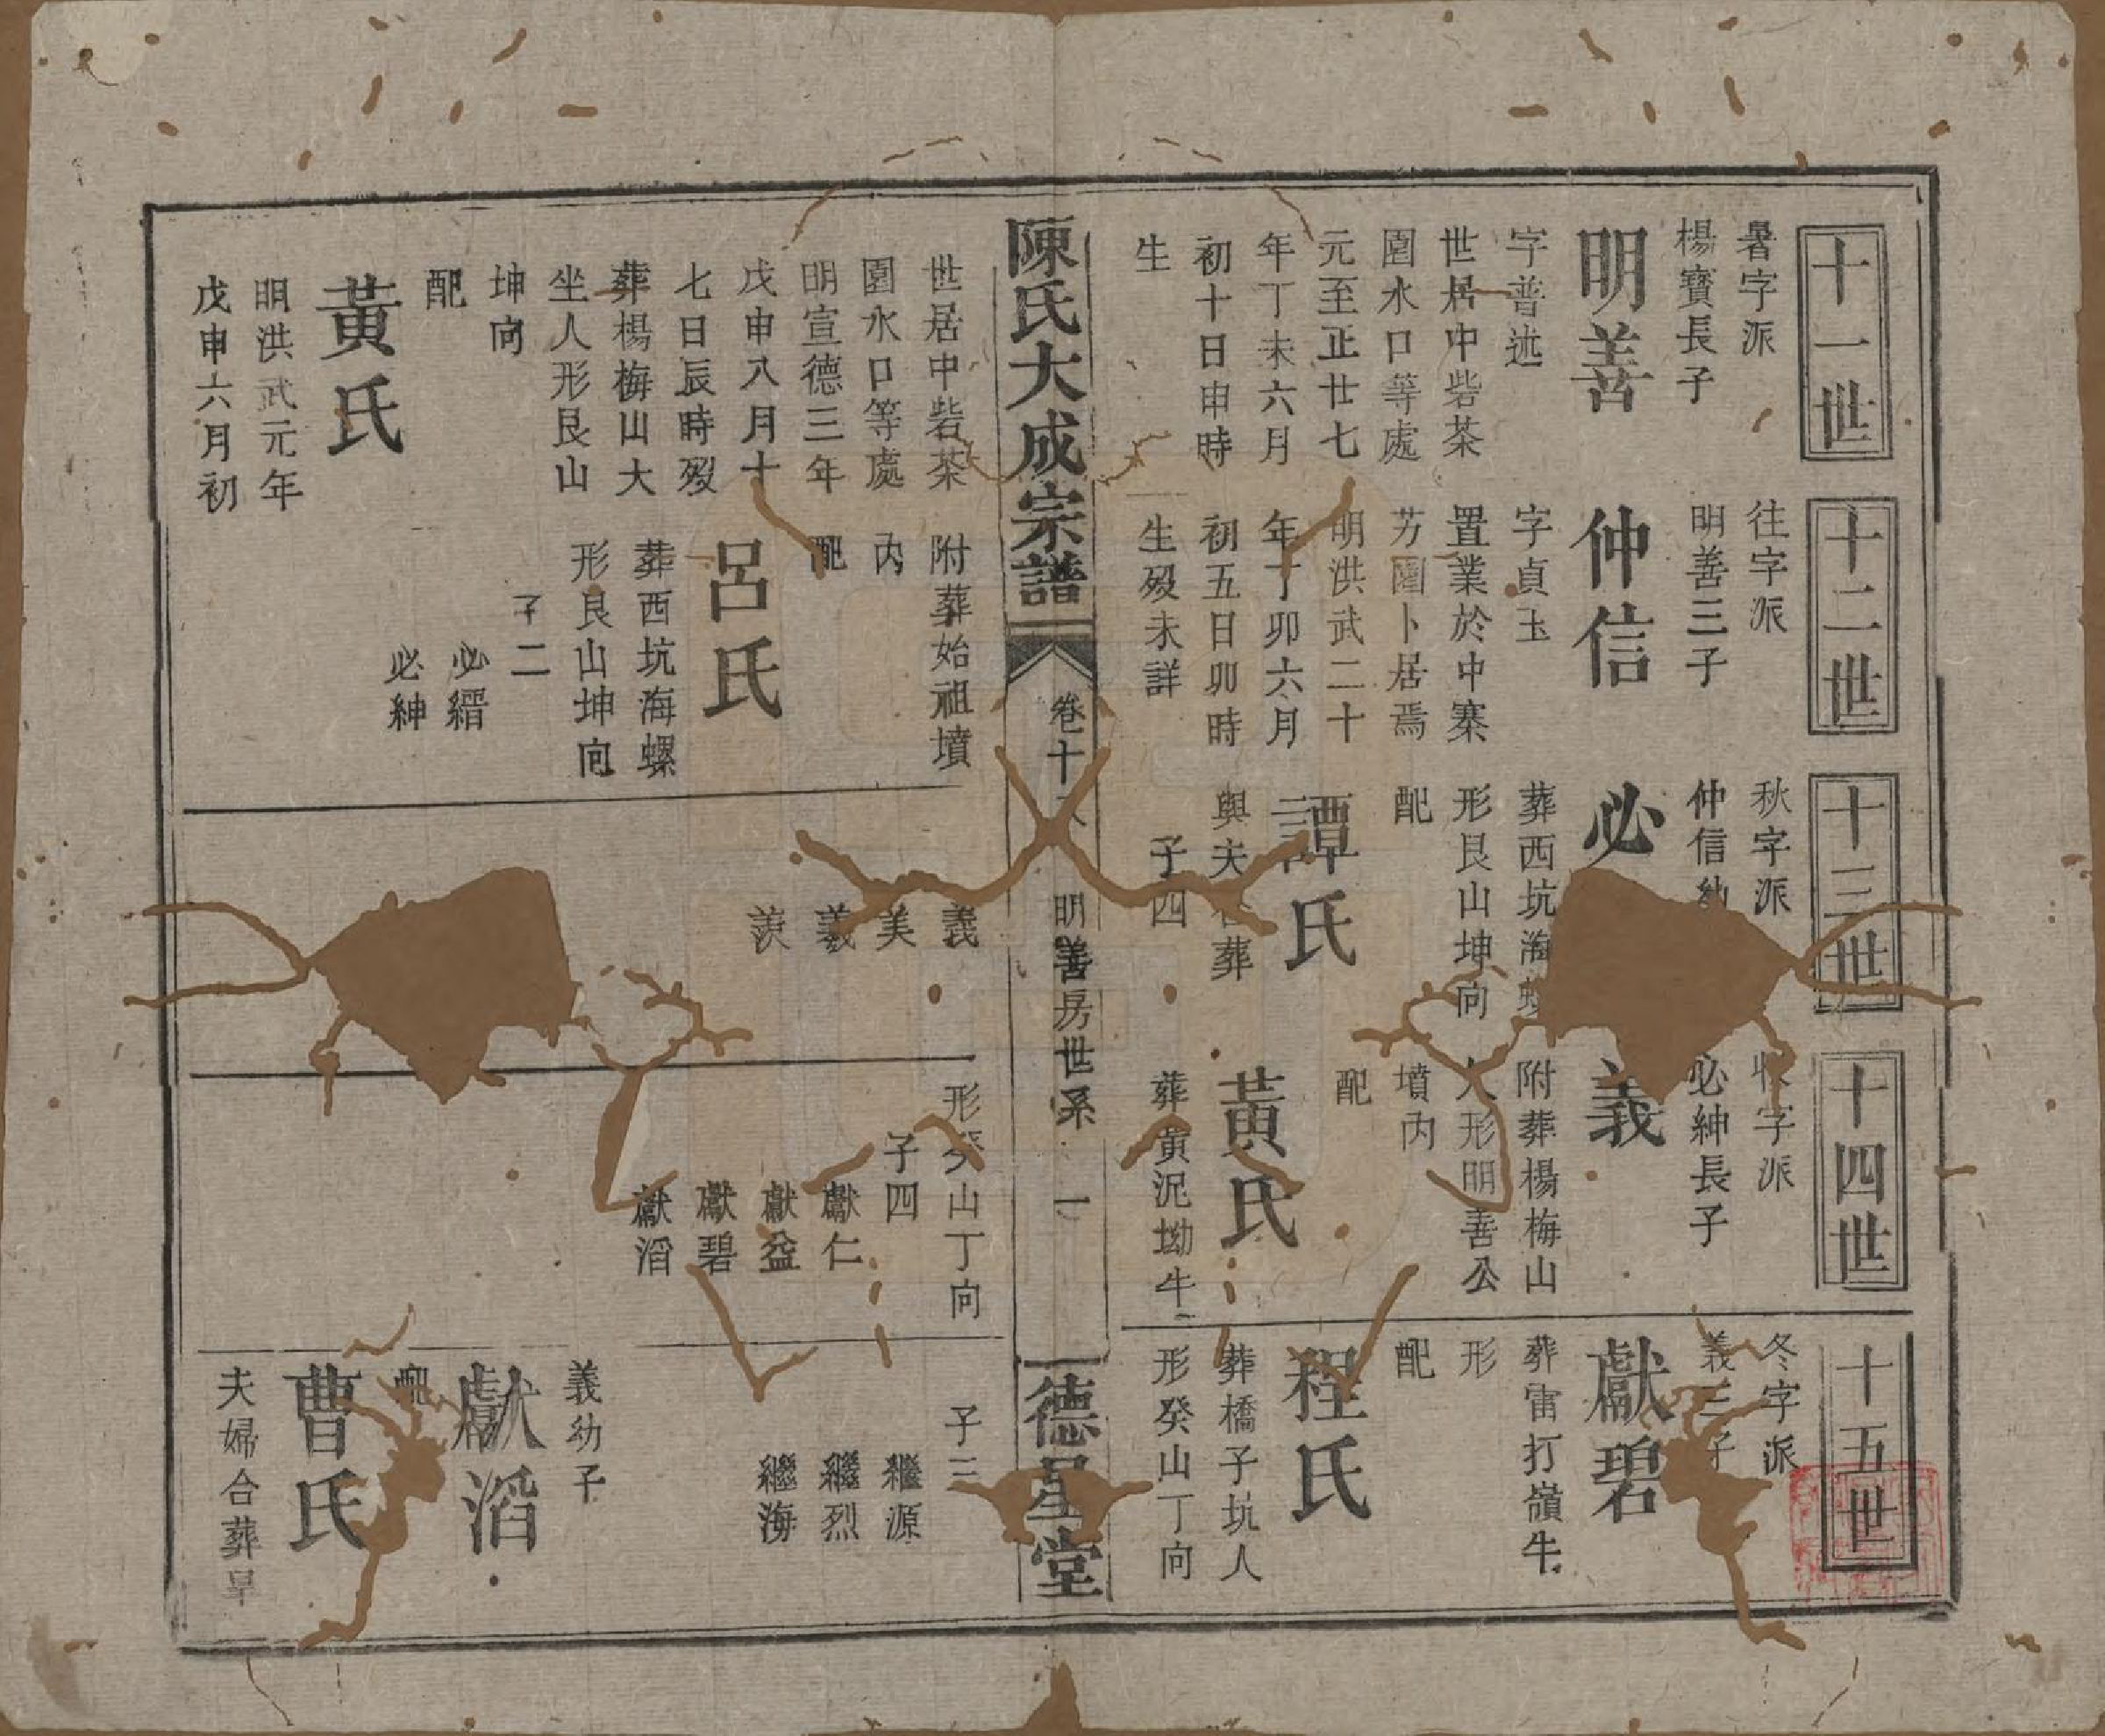 十一世
暑字派
楊寶長子
明善
字普述
世居中砦茶
園水口等處
元至正廿七
年丁未六月
初十日申時
生
十二世
往字派
明善三子
仲信
字貞玉
置業於中寨
芳園卜居焉
明洪武二十
年丁卯六月
初五日卯時
生歿未詳
十三世
秋字派
仲信幼
必
葬西坑海螺
形艮山坤向
配
譚氏
與夫合葬
子四
十四世
收字派
必紳長子
義
附葬楊梅山
人形明善公
墳內
配
黃氏
葬黄泥坳牛
十五世
冬字派
義三子
獻碧
葬雷打嶺牛
形
配
程氏
葬橋子坑人
形癸山丁向
陳氏大成宗譜
卷十
明善房世系
一
德星堂
世居中砦茶
園水口等處
明宣德三年
戊申八月十
七日辰時歿
葬楊梅山大
坐人形艮山
坤向
配
黃氏
明洪武元年
戊申六月初
附葬始祖墳
內
配
呂氏
葬西坑海螺
形艮山坤向
子二
必縉
必紳
義
美
羲
羨
形癸山丁向
子四
獻仁
獻益
獻碧
獻滔
子三
繼源
繼烈
繼海
義幼子
獻滔
配
曹氏
夫婦合葬旱